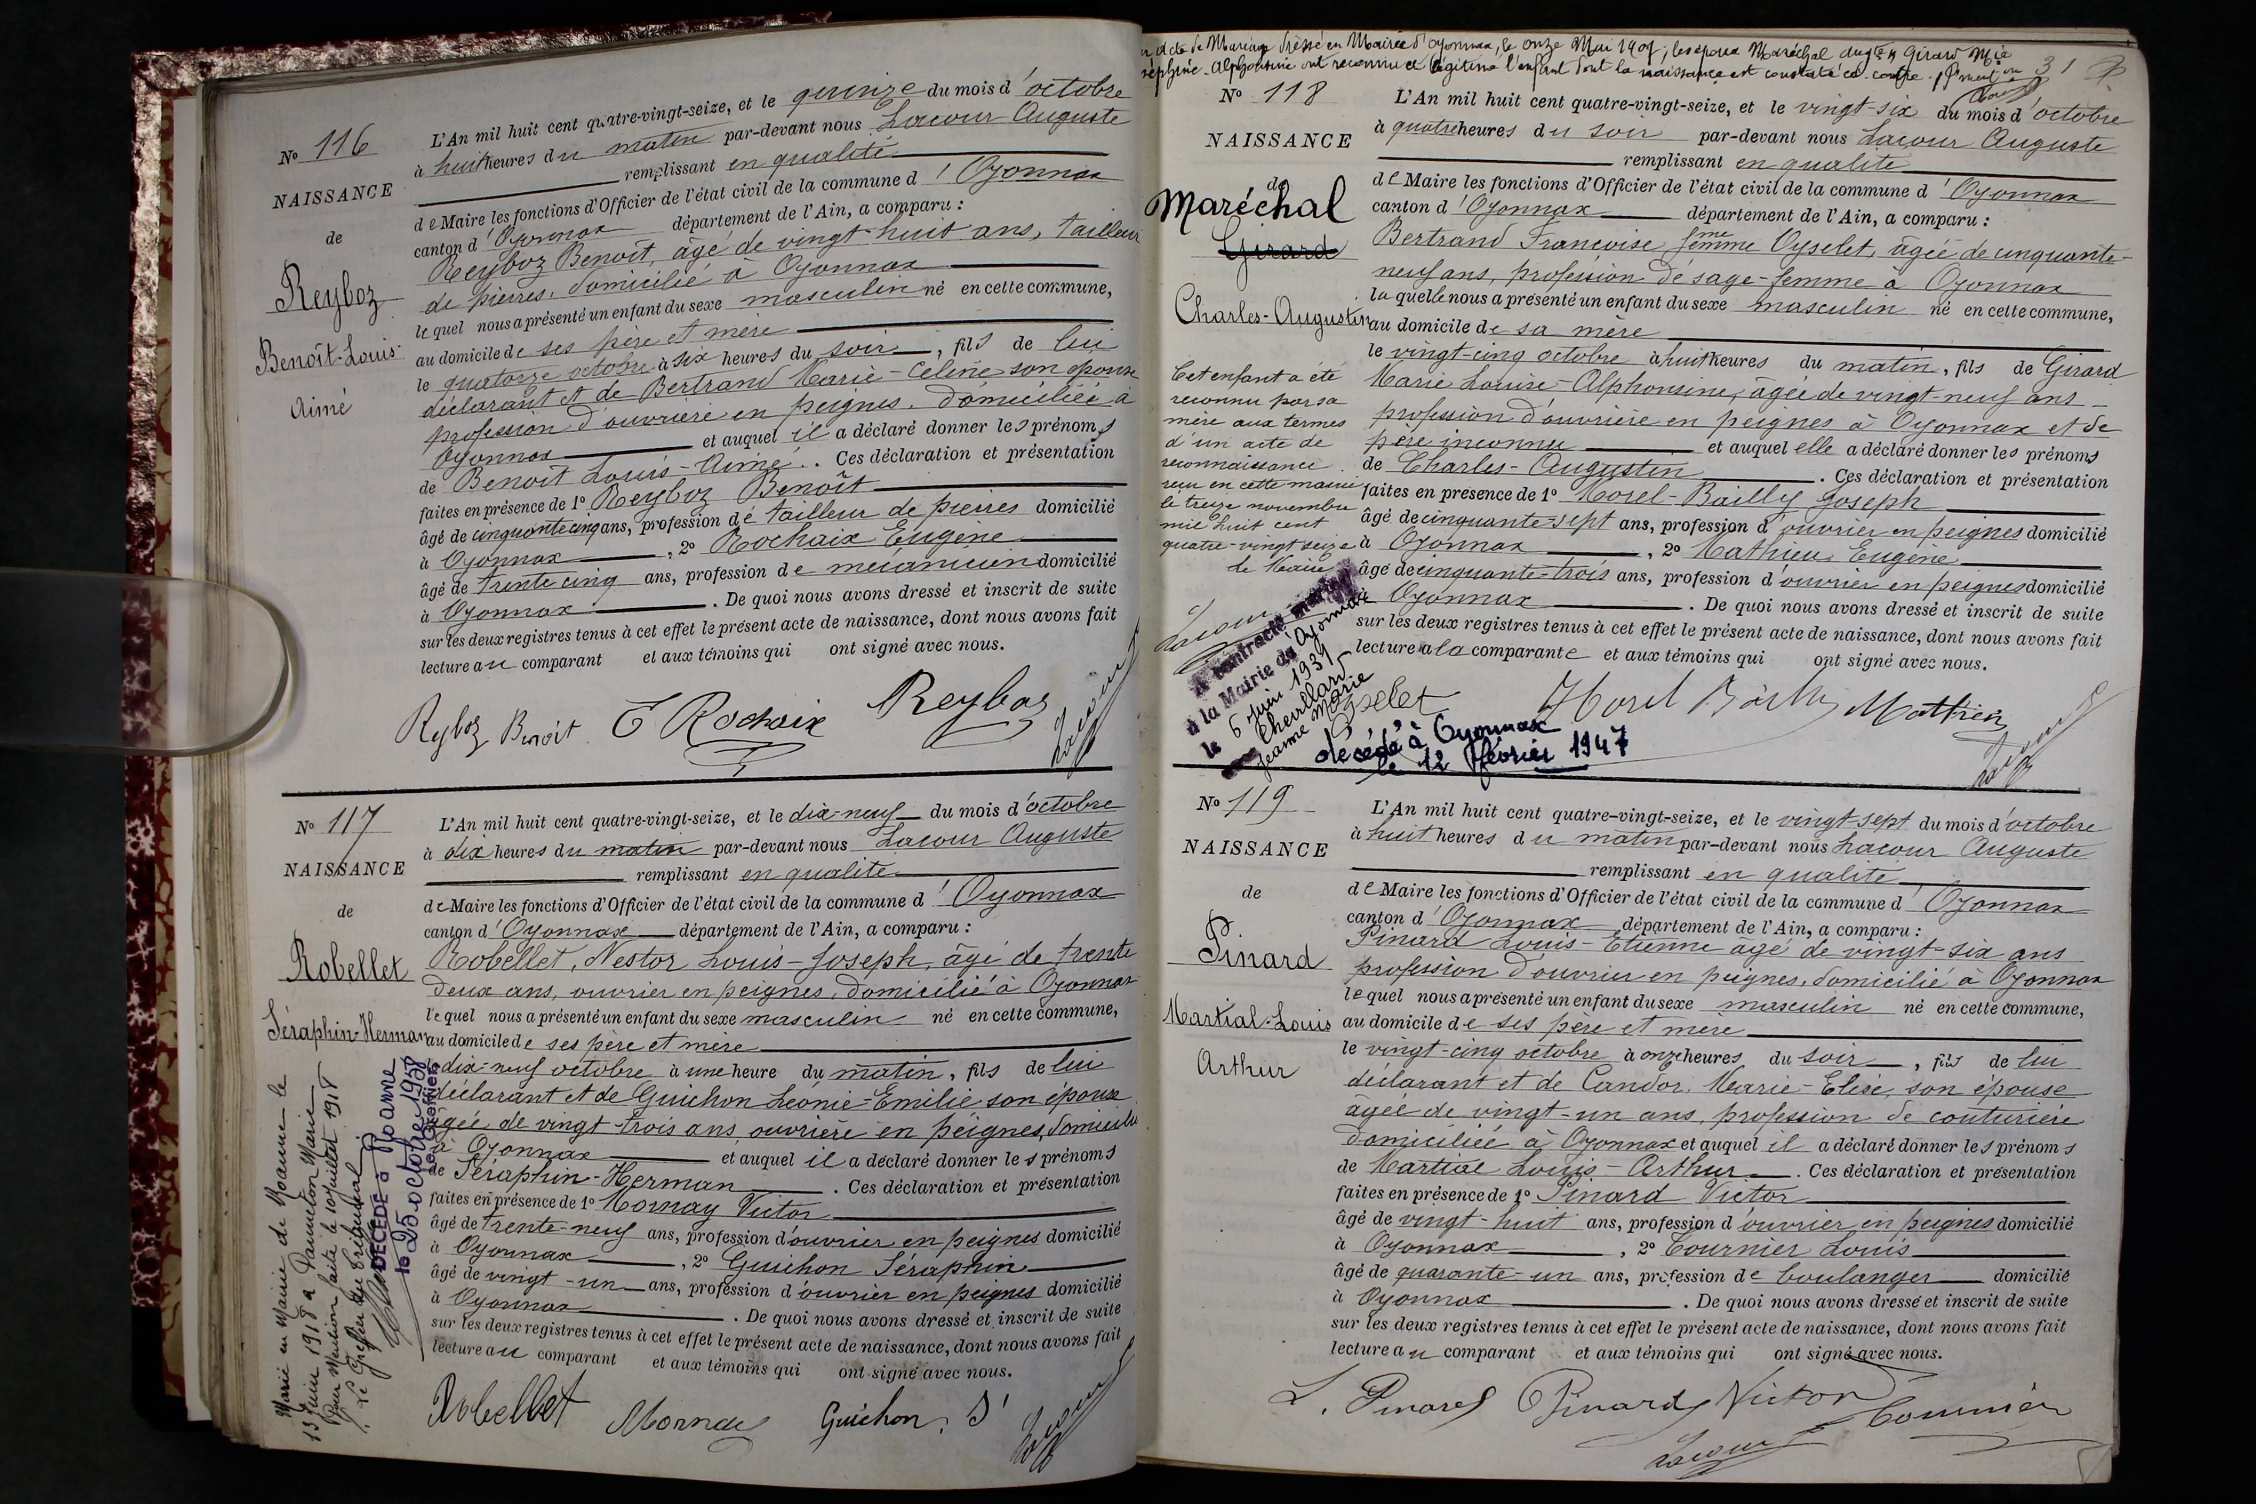 No 116
NAISSANCE
de
Reyboz
Benoît-Louis-
Aimé
L'An mil huit cent quatre-vingt-seize, et le quinze du mois d'octobre
à huit heures du matin par-devant nous Lacour Auguste
remplissant en qualité
de Maire les fonctions d'Officier de l'état civil de la commune d'Oyonnax
canton d'Oyonnax département de l'Ain, a comparu :
Reyboz Benoît, âgé de vingt-huit ans, tailleur
de pierres, domicilié à Oyonnax
lequel nous a présenté un enfant du sexe masculin né en cette commune,
au domicile de ses père et mère
le quatorze octobre à six heures du soir, fils de lui
déclarant et de Bertrand Marie-Céline son épouse
profession d'ouvrière en peignes, domiciliée à
Oyonnax et auquel il a déclaré donner les prénoms
de Benoît Louis-Aimé. Ces déclaration et présentation
faites en présence de 1o Reyboz Benoît
âgé de cinquante cinq ans, profession de tailleur de pierres domicilié
à Oyonnax, 2o Rochaix Eugène
âgé de trente cinq ans, profession de mécanicien domicilié
à Oyonnax. De quoi nous avons dressé et inscrit de suite
sur les deux registres tenus à cet effet le présent acte de naissance, dont nous avons fait
lecture au comparant et aux témoins qui ont signé avec nous.
Reyboz Benoit E Rochaix Reyboz Lacour
No 117
NAISSANCE
de
Robellet
Séraphin-Herman
L'An mil huit cent quatre-vingt-seize, et le dix-neuf du mois d'octobre
à dix heures du matin par-devant nous Lacour Auguste
remplissant en qualité
de Maire les fonctions d'Officier de l'état civil de la commune d'Oyonnax
canton d'Oyonnax département de l'Ain, a comparu :
Robellet, Nestor Louis-Joseph, âgé de trente
deux ans, ouvrier en peignes, domicilié à Oyonnax
lequel nous a présenté un enfant du sexe masculin né en cette commune,
au domicile de ses père et mère
dix-neuf octobre à une heure du matin, fils de lui
déclarant et de Guichon Léonie-Emélie son épouse
âgée de vingt-trois ans, ouvrière en peignes, domiciliée
à Oyonnax et auquel il a déclaré donner les prénoms
de Séraphin-Herman. Ces déclaration et présentation
faites en présence de 1o Mornay Victor
âgé de trente-neuf ans, profession d'ouvrier en peignes domicilié
à Oyonnax, 2o Guichon Séraphin
âgé de vingt-un ans, profession d'ouvrier en peignes domicilié
à Oyonnax. De quoi nous avons dressé et inscrit de suite
sur les deux registres tenus à cet effet le présent acte de naissance, dont nous avons fait
lecture au comparant et aux témoins qui ont signé avec nous.
Robellet Mornay Guichon. S Lacour
Marié en Mairie de Roanne le
13 Juin 1918 à Danneton Marie
Pour Mention faite le 10 juillet 1918
Le Greffier du Tribunal
DÉCÉDÉ à Roanne
le 25 octobre 1958
Le Greffier
acte de Mariage dressé en Mairie d'Oyonnax, le onze Mai 1907, les époux Maréchal Augte & Girard Mie
Joséphine-Alphonsine ont reconnu et légitimé l'enfant dont la naissance est constatée ci-contre.
31
No 118
NAISSANCE
de
Maréchal
Girard
Charles-Augustin
Cet enfant a été
reconnu par sa
mère aux termes
d'un acte de
reconnaissance
reçu en cette mairie
le treize novembre
mil huit cent
quatre-vingt seize
Le Maire
Lacour
A contracté mariage
à la Mairie d'Oyonnax
le 6 juin 1939
Chevillard
Jeanne Marie
L'An mil huit cent quatre-vingt-seize, et le vingt-six du mois d'octobre
à quatre heures du soir par-devant nous Lacour Auguste
remplissant en qualité
de Maire les fonctions d'Officier de l'état civil de la commune d'Oyonnax
canton d'Oyonnax département de l'Ain, a comparu :
Bertrand Françoise fme femme Oyselet, âgée de cinquante-
neuf ans, profession de sage-femme à Oyonnax
laquelle nous a présenté un enfant du sexe masculin né en cette commune,
au domicile de sa mère
le vingt-cinq octobre à huit heures du matin, fils de Girard
Marie Louise-Alphonsine, âgée de vingt-neuf ans
profession d'ouvrière en peignes à Oyonnax et de
père inconnu et auquel elle a déclaré donner les prénoms
de Charles-Augustin. Ces déclaration et présentation
faites en présence de 1o Morel-Bailly Joseph
âgé de cinquante-sept ans, profession d'ouvrier en peignes domicilié
à Oyonnax, 2o Mathieu Eugène
âgé de cinquante-trois ans, profession d'ouvrier en peignes domicilié
à Oyonnax. De quoi nous avons dressé et inscrit de suite
sur les deux registres tenus à cet effet le présent acte de naissance, dont nous avons fait
lecture à la comparante et aux témoins qui ont signé avec nous.
Oyselet Morel Bailly Mathieu Lacour
décédé à Oyonnax
le 12 février 1947
No 119
NAISSANCE
de
Pinard
Martial-Louis
Arthur
L'An mil huit cent quatre-vingt-seize, et le vingt-sept du mois d'octobre
à huit heures du matin par-devant nous Lacour Auguste
remplissant en qualité
de Maire les fonctions d'Officier de l'état civil de la commune d'Oyonnax
canton d'Oyonnax département de l'Ain, a comparu :
Pinard Louis-Etienne âgé de vingt-six ans
profession d'ouvrier en peignes, domicilié à Oyonnax
lequel nous a présenté un enfant du sexe masculin né en cette commune,
au domicile de ses père et mère
le vingt-cinq octobre à onze heures du soir, fils de lui
déclarant et de Candor Marie-Elise, son épouse
âgée de vingt-un ans, profession de couturière
domiciliée à Oyonnax et auquel il a déclaré donner les prénoms
de Martial Louis-Arthur. Ces déclaration et présentation
faites en présence de 1o Pinard Victor
âgé de vingt-huit ans, profession d'ouvrier en peignes domicilié
à Oyonnax, 2o Tournier Louis
âgé de quarante-un ans, profession de boulanger domicilié
à Oyonnax. De quoi nous avons dressé et inscrit de suite
sur les deux registres tenus à cet effet le présent acte de naissance, dont nous avons fait
lecture au comparant et aux témoins qui ont signé avec nous.
L. Pinard Pinard Victor Tournier
Lacour